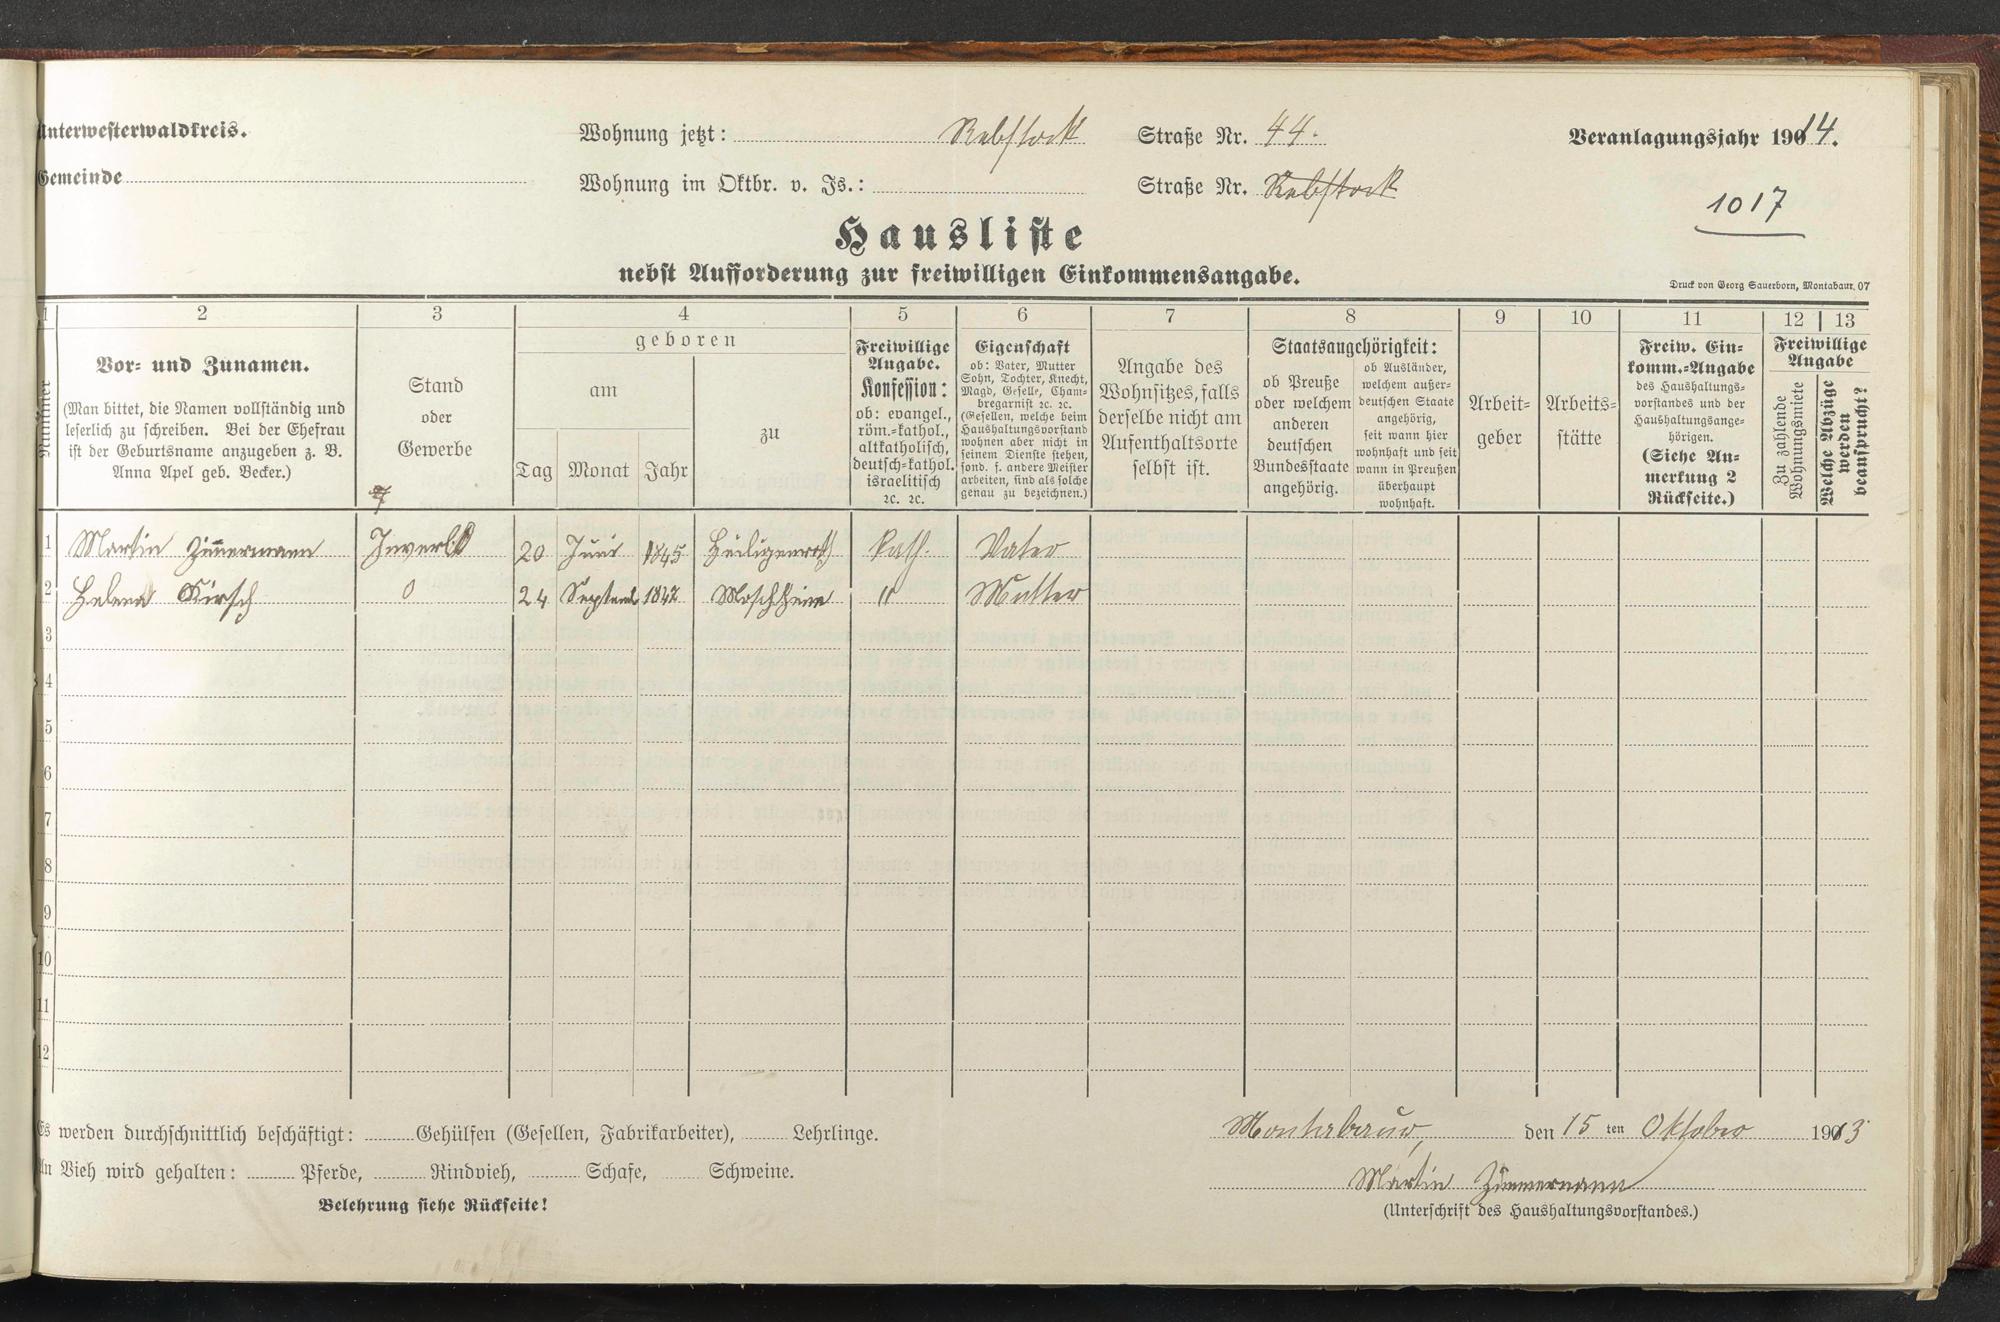 Unterwesterwaldkreis.
Wohnung jetzt: Rebstock Straße Nr. 44.
Veranlagungsjahr 1914.
Gemeinde
Wohnung im Oktbr. v. Js.: Straße Nr. Rebstock
1017
Hausliste
nebst Aufforderung zur freiwilligen Einkommensangabe.
Druck von Georg Sauerborn, Montabaur. 07
1 2 3 4 5 6 7 8 9 10 11 12 13
Nummer
Vor- und Zunamen.
(Man bittet, die Namen vollständig und
leserlich zu schreiben. Bei der Ehefrau
ist der Geburtsname anzugeben z. B.
Anna Apel geb. Becker.)
Stand
oder
Gewerbe
geboren
am
Tag Monat Jahr
zu
Freiwillige
Angabe.
Konfession:
ob: evangel.,
röm.-kathol.,
altkatholisch,
deutsch-kathol.
israelitisch
ꝛc. ꝛc.
Eigenschaft
ob: Vater, Mutter
Sohn, Tochter, Knecht,
Magd, Geselle, Cham-
bregarnist ꝛc. ꝛc.
(Gesellen, welche beim
Haushaltungsvorstand
wohnen aber nicht in
seinem Dienste stehen,
sond. f. andere Meister
arbeiten, sind als solche
genau zu bezeichnen.)
Angabe des
Wohnsitzes, falls
derselbe nicht am
Aufenthaltsorte
selbst ist.
Staatsangehörigkeit:
ob Preuße
oder welchem
anderen
deutschen
Bundesstaate
angehörig.
ob Ausländer,
welchem außer-
deutschen Staate
angehörig,
seit wann hier
wohnhaft und seit
wann in Preußen
überhaupt
wohnhaft.
Arbeit-
geber
Arbeits-
stätte
Freiw. Ein-
komm.-Angabe
des Haushaltungs-
vorstandes und der
Haushaltungsange-
hörigen.
(Siehe An-
merkung 2
Rückseite.)
Freiwillige
Angabe
Zu zahlende
Wohnungsmiete
Welche Abzüge
werden
beansprucht?
1 Martin Zimmermann 20 Juni 1845 Heiligenroth Kath. Vater
2 Helena Kirsch 0 24 Septemb 1842 Moschheim " Mutter
3
4
5
6
7
8
9
10
11
12
Es werden durchschnittlich beschäftigt: Gehülfen (Gesellen, Fabrikarbeiter), Lehrlinge.
An Vieh wird gehalten: Pferde, Rindvieh, Schafe, Schweine.
Belehrung siehe Rückseite!
Montabaur, den 15 ten Oktober 1913
Martin Zimmermann
(Unterschrift des Haushaltungsvorstandes.)